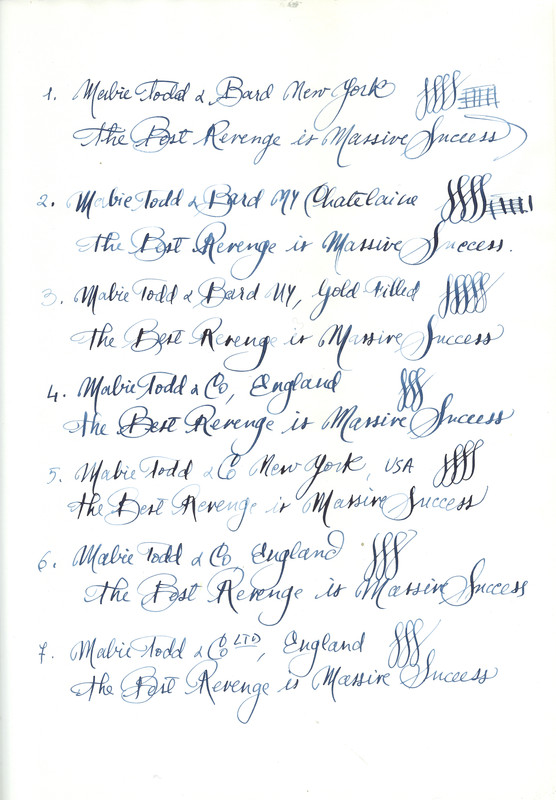 1. Mabie Todd & Bard New York
The Best Revenge is Massive Success
2. Mabie Todd & Bard NY (Chatelaine
The Best Revenge is Massive Success.
3. Mabie Todd & Bard NY, Gold Filled
The Best Revenge is Massive Success
4. Mabie Todd & Co, England
The Best Revenge is Massive Success
5. Mabie Todd & Co New York, USA
The Best Revenge is Massive Success
6. Mabie Todd & Co, England
The Best Revenge is Massive Success
7. Mabie Todd & Co LTD, England
The Best Revenge is Massive Success